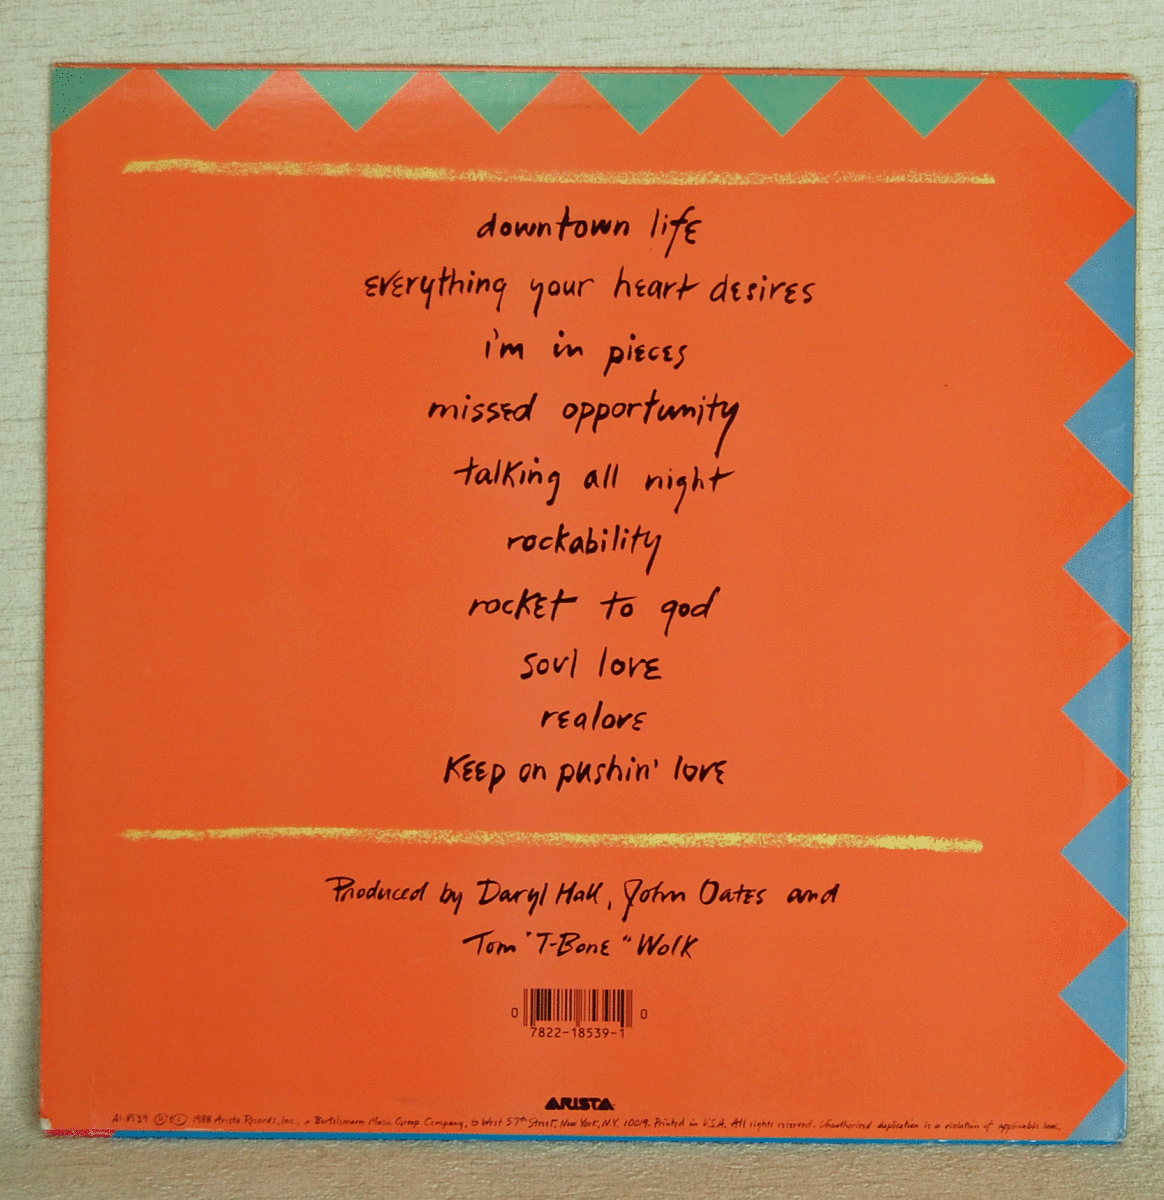 downtown life
everything your heart desires
i'm in pieces
missed opportunity
talking all night
rockability
rocket to god
soul love
realove
keep on pushin' love
Produced by Daryl Hall, John Oates and
Tom "T-Bone" Wolk
0 7822-18539-1 0
ARISTA
Al-8539 ℗+© 1988 Arista Records, Inc., a Bertelsmann Music Group Company, 6 West 57th Street, New York, N.Y. 10019. Printed in U.S.A. All rights reserved. Unauthorized duplication is a violation of applicable laws.